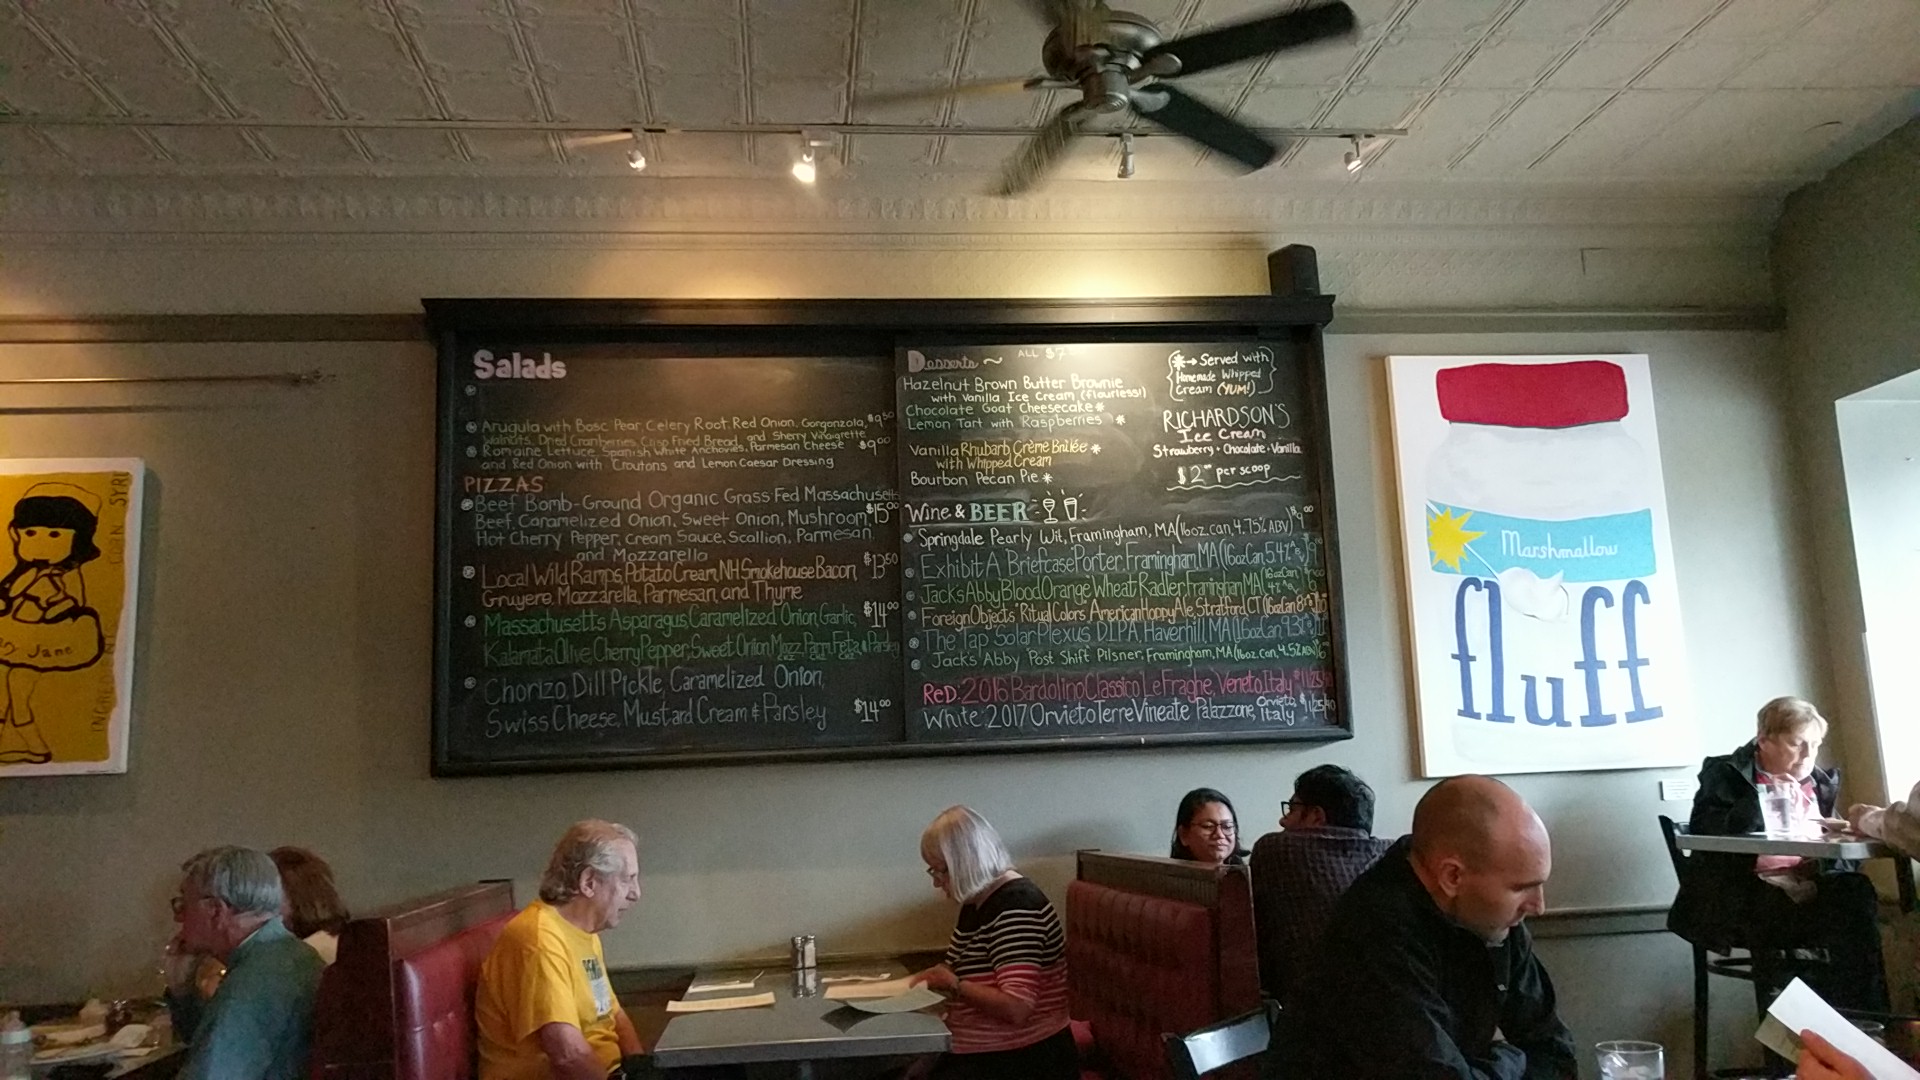 Salads
Arugula with Bosc Pear, Celery Root, Red Onion, Gorgonzola, $9.50
Walnuts, Dried Cranberries, Crisp Fried Bread, and Sherry Vinaigrette
Romaine Lettuce, Spanish White Anchovies, Parmesan Cheese $9.00
and Red Onion with Croutons and Lemon Caesar Dressing
PIZZAS
Beef Bomb-Ground Organic Grass Fed Massachusetts
Beef, Caramelized Onion, Sweet Onion, Mushroom, $15.00
Hot Cherry Pepper, cream Sauce, Scallion, Parmesan
and Mozzarella
Local Wild Ramps, Potato Cream, NH Smokehouse Bacon, $13.50
Gruyere, Mozzarella, Parmesan, and Thyme
Massachusetts Asparagus, Caramelized Onion, Garlic, $14.00
Kalamata Olive, Cherry Pepper, Sweet Onion, Mozz, Parm, Feta, & Parsley
Chorizo, Dill Pickle, Caramelized Onion,
Swiss Cheese, Mustard Cream & Parsley $14.00
Desserts ~ ALL $7
Hazelnut Brown Butter Brownie
with Vanilla Ice Cream (flourless!)
Chocolate Goat Cheesecake *
Lemon Tart with Raspberries *
Vanilla Rhubarb Crème Brûlée *
with Whipped Cream
Bourbon Pecan Pie *
* → Served with
Homemade Whipped
Cream (YUM!)
RICHARDSON'S
Ice Cream
Strawberry • Chocolate • Vanilla
per scoop
Wine & BEER
Springdale Pearly Wit, Framingham, MA (16oz.can, 4.75% ABV)
Exhibit A Briefcase Porter, Framingham, MA (16oz Can,
Jacks Abby Blood Orange Wheat Radler, Framingham, MA
Foreign Objects "Ritual Colors" American Hoppy Ale, Stratford, CT (16oz Can
The Tap "Solar Plexus" D.I.P.A. Haverhill, MA (16oz Can
Jack's Abby Post Shift Pilsner, Framingham, MA (16oz.can, 4.5% ABV)
ReD: 2016 Bardolino Classico Le Fraghe, Veneto, Italy
White: 2017 Orvieto Terre Vineate Palazzone, Orvieto, Italy
Marshmallow
fluff
Jane
CORN SYR
INGRED